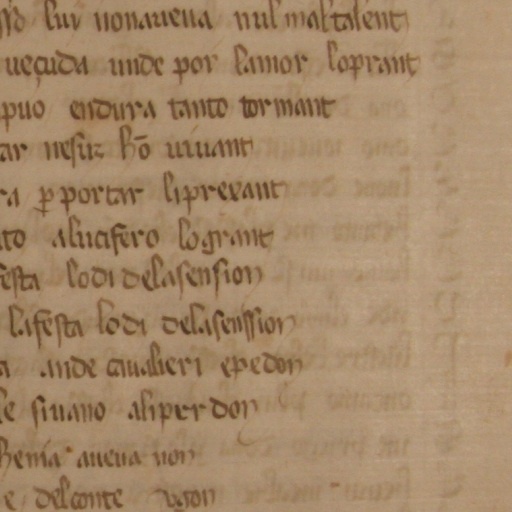 sso lui non aueua nul maltalent
ueçuda unde por lamor loprant
puo endura tanto tormant
ar nesuz hõ uiuant
ra p portar li prexant
to a lucifero lo grant
festa lo di de lasension
la festa lo di de lasenssion
a ande caualieri e pedon
le si uano a li perdon
henia aueua non
e del conte ugon